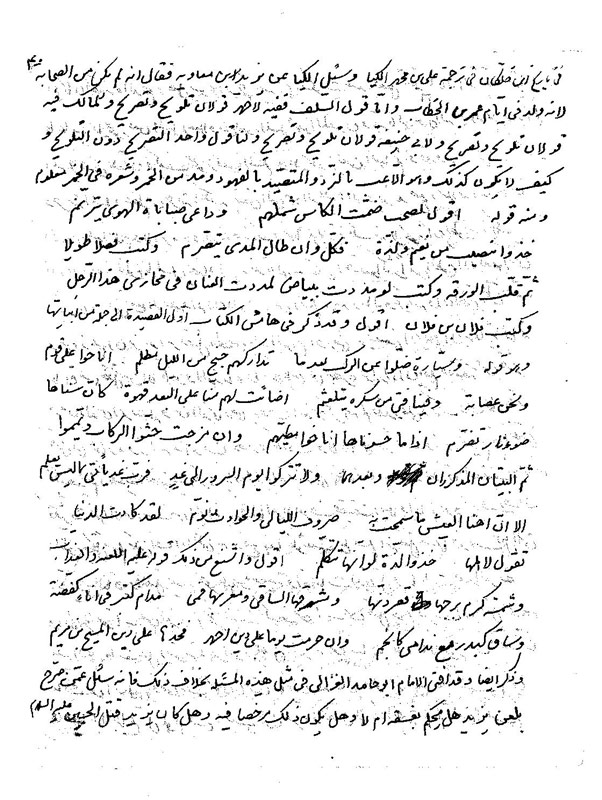 في تاريخ ابن خلكان في ترجمة علي بن محمد الكيا وسئل الكيا عن يزيد بن معاوية فقال انه لم يكن من الصحابة
لانه ولد في ايام عمر بن الخطاب واما قول السلف ففيه لاحمد قولان تلويح وتصريح ولمالك فيه
قولان تلويح وتصريح ولابي حنيفة قولان تلويح وتصريح ولنا قول واحد التصريح دون التلويح و
كيف لا يكون كذلك وهو اللاعب بالنرد والمتصيد بالفهود ومدمن الخمر وشعره في الخمر معلوم
ومنه قوله اقول لصحب ضمت الكاس شملهم وداعي صبابات الهوى يترنم
خذوا بنصيب من نعيم ولذة فكل وان طال المدى يتصرم وكتب فصلا طويلا
ثم قلب الورقة وكتب لو مددت ببياض لمددت العنان في مخازي هذا الرجل
وكتب فلان بن فلان اقول وقد ذكر في هامش الكتاب اول القصيدة الى جملة من ابياتها
وهو قوله وسيارة ضلوا عن الركب بعدما تداركهم جنح من الليل مظلم اناخوا على قوم
ونحن عصابة وفينا فتى من سكره يتلعثم اضائت لهم منا على البعد قهوة كان سناها
ضوء نار تضرم اذا ما حسوناها اناخوا مطيهم وان مزجت حثوا الركاب ويمموا
ثم البيتان المذكوران وبعدهما ولا تتركوا يوم السرور الى غد فرب غد يأتي بما ليس يعلم
الا ان اهنا العيش ما سمحت به صروف الليالي والحوادث نوم لقد كادت الدنيا
تقول لاهلها خذوا لذة لو انها تتكلم اقول واشنع من ذلك قوله عليه اللعنة والعذاب
وشمسة كرم برجها قعر دنها ومشرقها الساقي ومغربها فمي مدام كتبر في اناء كفضة
وساق كبدر مع ندامى كانجم وان حرمت يوما على دين احمد فخذها على دين المسيح بن مريم
وذكر ايضا وقد افتى الامام ابو حامد الغزالي في مثل هذه المسئلة بخلاف ذلك فانه سئل عمن صرح
بلعن يزيد هل يحكم بفسقه ام لا وهل يكون ذلك مرخصا فيه وهل كان يزيد قتل الحسين عليه السلام